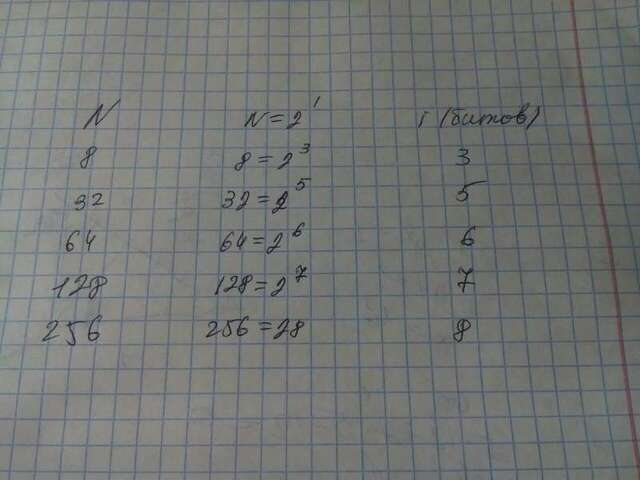 N N = 2^i i (битов)
8 8 = 2^3 3
32 32 = 2^5 5
64 64 = 2^6 6
128 128 = 2^7 7
256 256 = 28 8